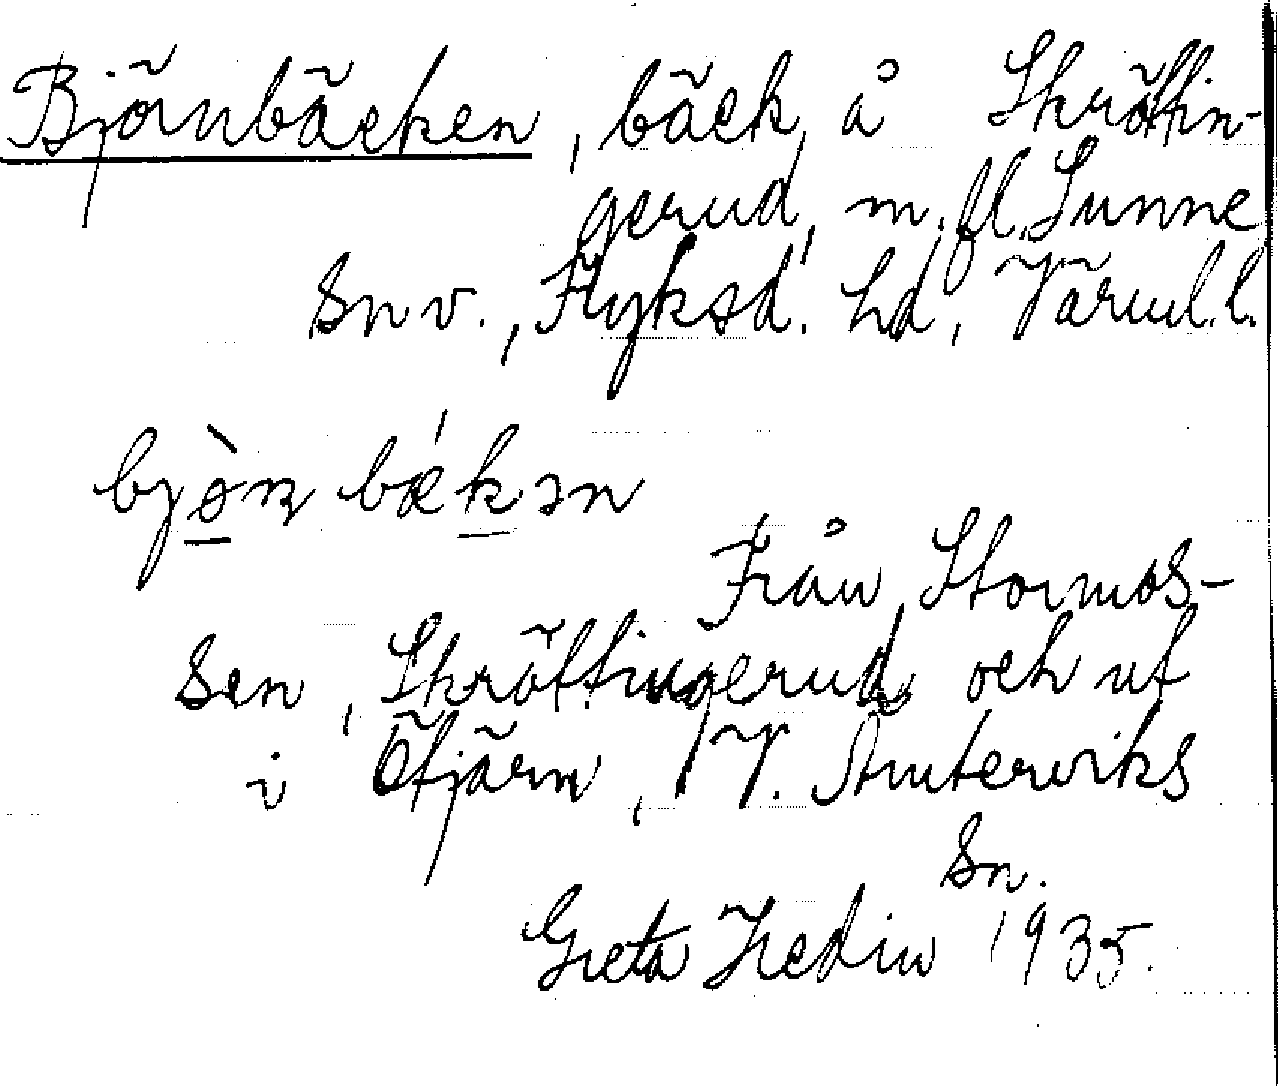 Björnbäcken, bäck, å Skräffin-
gerud, m. fl. Sunne
sn v., Fryksd. hd, Värml. l.
bjò̱n bǽḵən
Från Stormos-
sen, Skräffingerud, och ut
i Ötjärn, V. Ämterviks
sn.
Greta Hedin 1935.